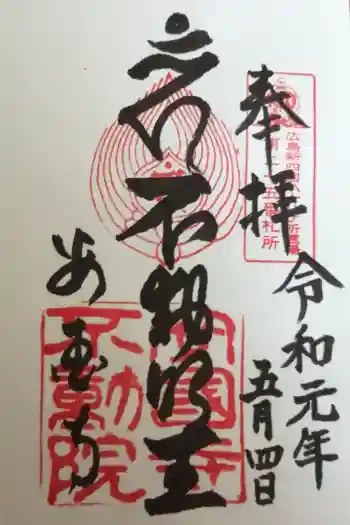 奉拝
広島新四国八十八ヶ所霊場
五番札所
不動明王
安国寺
令和元年
五月四日
安国寺
不動院